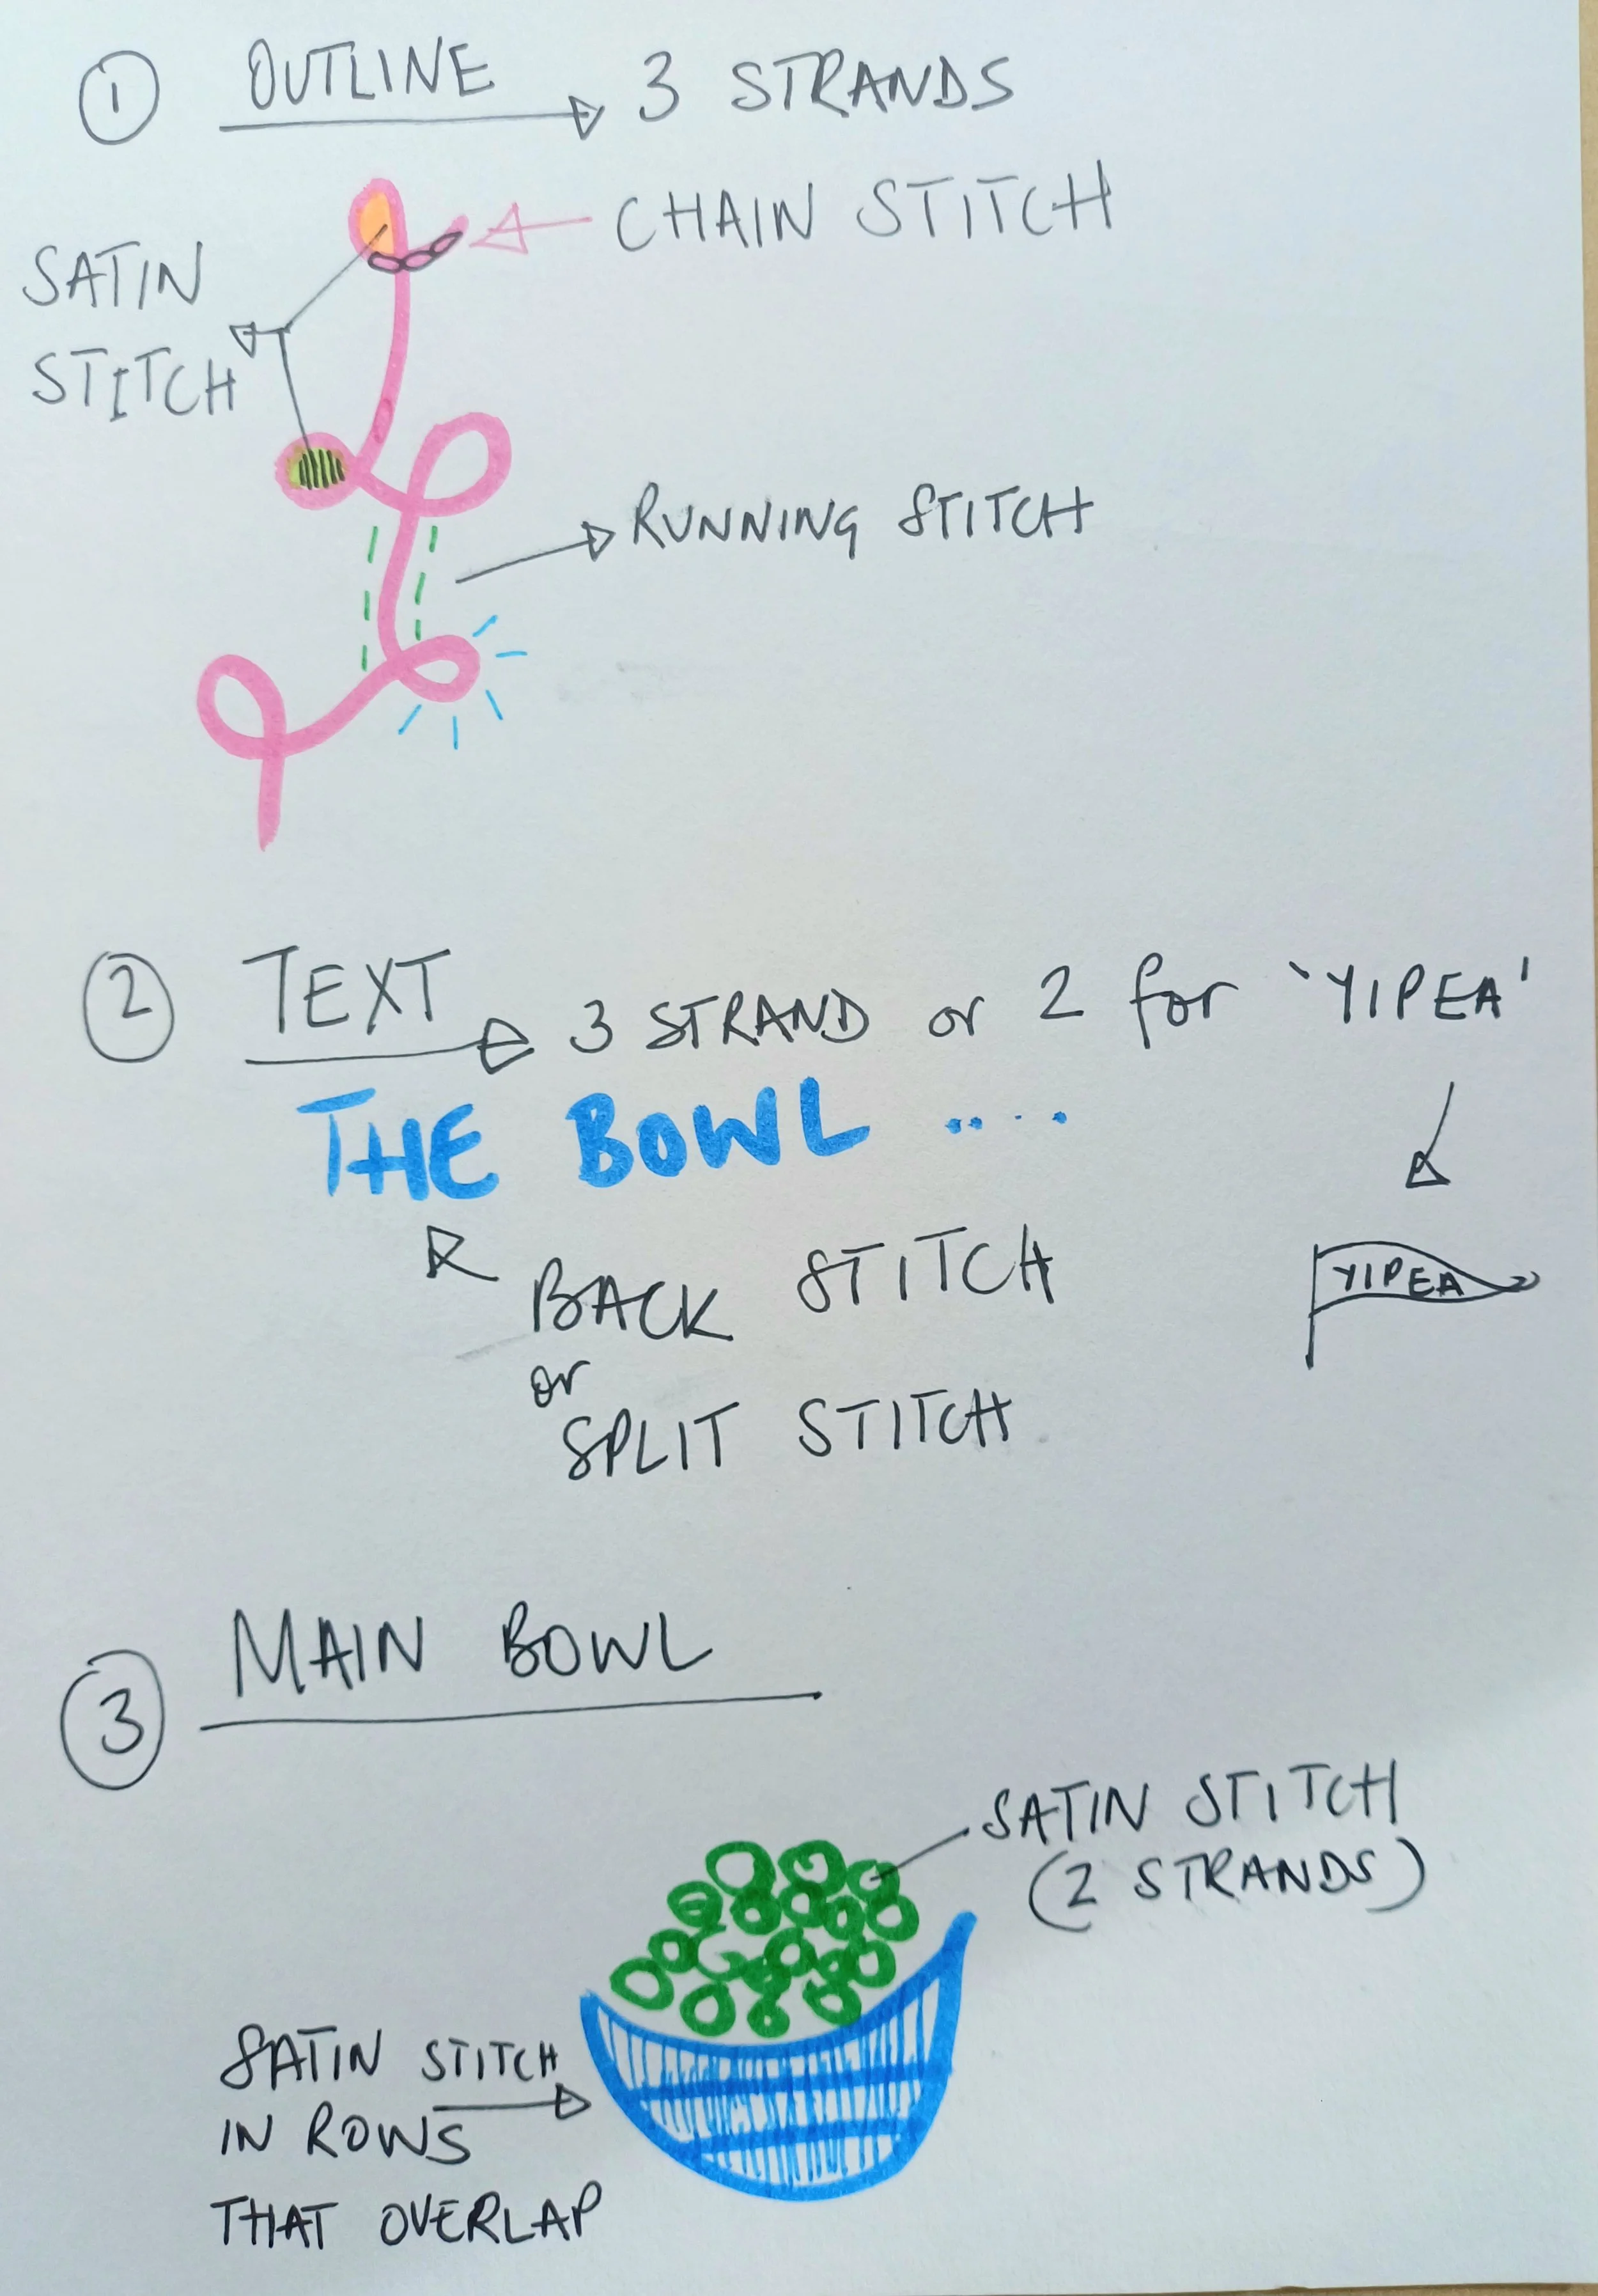 ① OUTLINE → 3 STRANDS
CHAIN STITCH
SATIN
STITCH
RUNNING STITCH
② TEXT → 3 STRAND or 2 for 'YIPEA'
THE BOWL ....
YIPEA
BACK STITCH
or
SPLIT STITCH
③ MAIN BOWL
SATIN STITCH
(2 STRANDS)
SATIN STITCH
IN ROWS
THAT OVERLAP